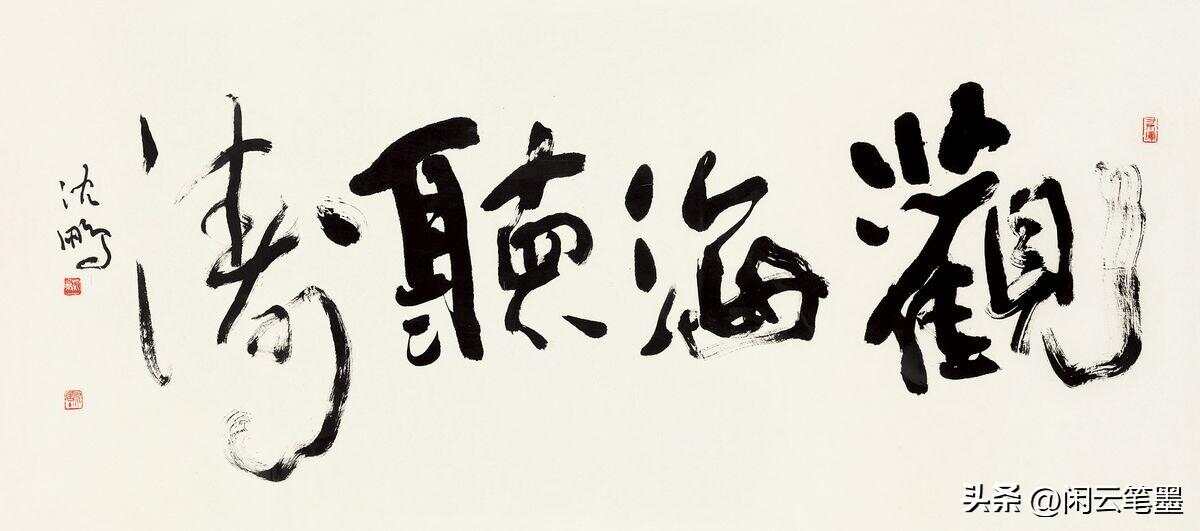 觀海聽濤
沈鵬
头条 @闲云笔墨